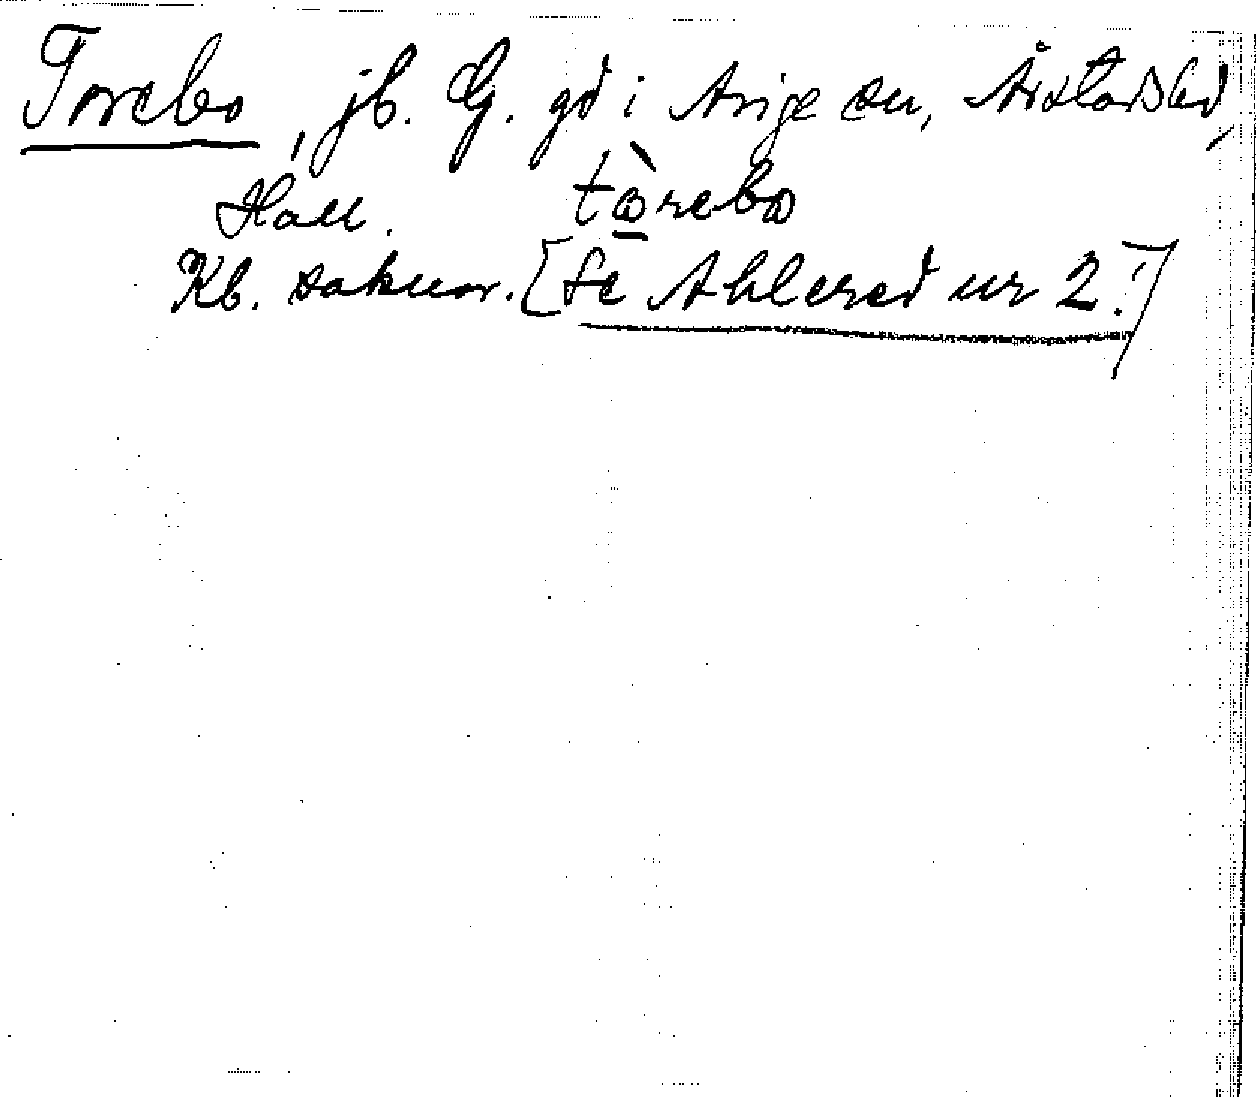 Torebo, jb. G. gd i Asige sn, Årstads hd,
Hall. tòrebo
Kb. saknar. [Se Ahlered nr 2!]